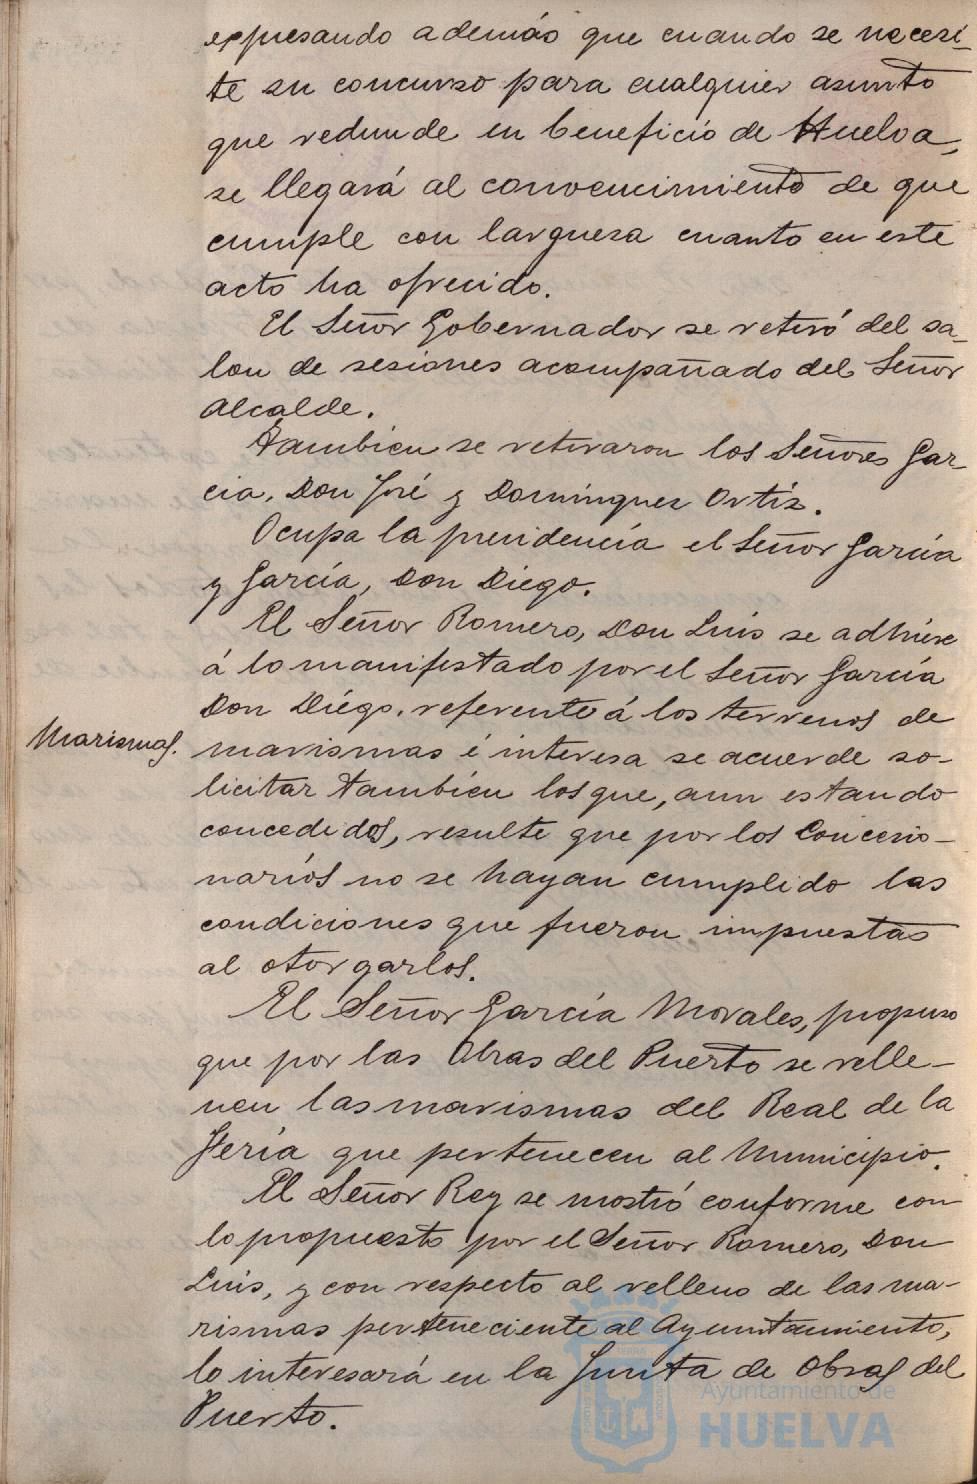 expresando además que cuando se necesi-
te su concurso para cualquier asunto
que redunde en beneficio de Huelva,
se llegará al convencimiento de que
cumple con larguesa cuanto en este
acto ha ofrecido.
El Señor Gobernador se retiró del sa-
lon de sesiones acompañado del Señor
Alcalde.
Tambien se retiraron los Señores Gar
cia, Don José y Domínguez Ortíz.
Ocupa la presidencia el Señor García
y García, Don Diego.
El Señor Romero, Don Luis se adhiere
á lo manifestado por el Señor García
Don Diego, referente á los terrenos de
Marismas. marismas é interesa se acuerde so-
licitar tambien los que, aun estando
concedidos, resulte que por los Concesio-
narios no se hayan cumplido las
condiciones que fueron impuestas
al otorgarlos.
El Señor García Morales, propuso
que por las Obras del Puerto se relle-
nen las marismas del Real de la
Fería que pertenecen al Municipio.
El Señor Rey se mostró conforme con
lo propuesto por el Señor Romero, Don
Luis, y con respecto al relleno de las ma-
rismas perteneciente al Ayuntamiento,
lo interesará en la Junta de Obras del
Puerto.
Ayuntamiento de
HUELVA